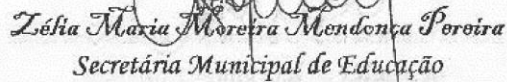 Zélia Maria Moreira Mendonça Pereira
Secretária Municipal de Educação